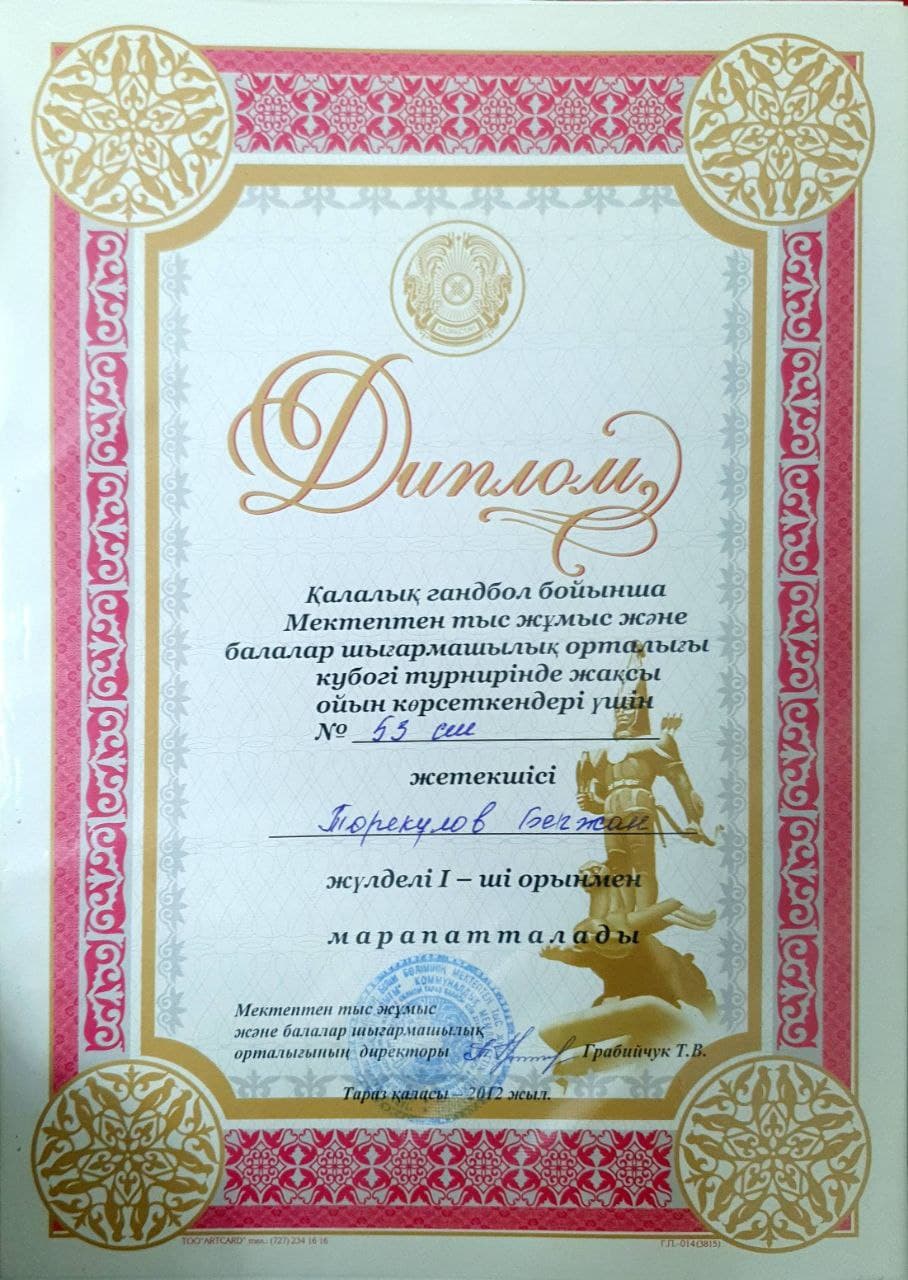 Диплом
Қалалық гандбол бойынша
Мектептен тыс жұмыс және
балалар шығармашылық орталығы
кубогі турнирінде жақсы
ойын көрсеткендері үшін
№ 53 сш
жетекшісі
Торекулов Бегжан
жүлделі I – ші орынмен
марапатталады
Мектептен тыс жұмыс
және балалар шығармашылық
орталығының директоры Грабийчук Т.В.
Тараз қаласы – 2012 жыл.
ТОО "ARTCARD" тел.: (727) 234 16 16
Г.П.-014 (3815)